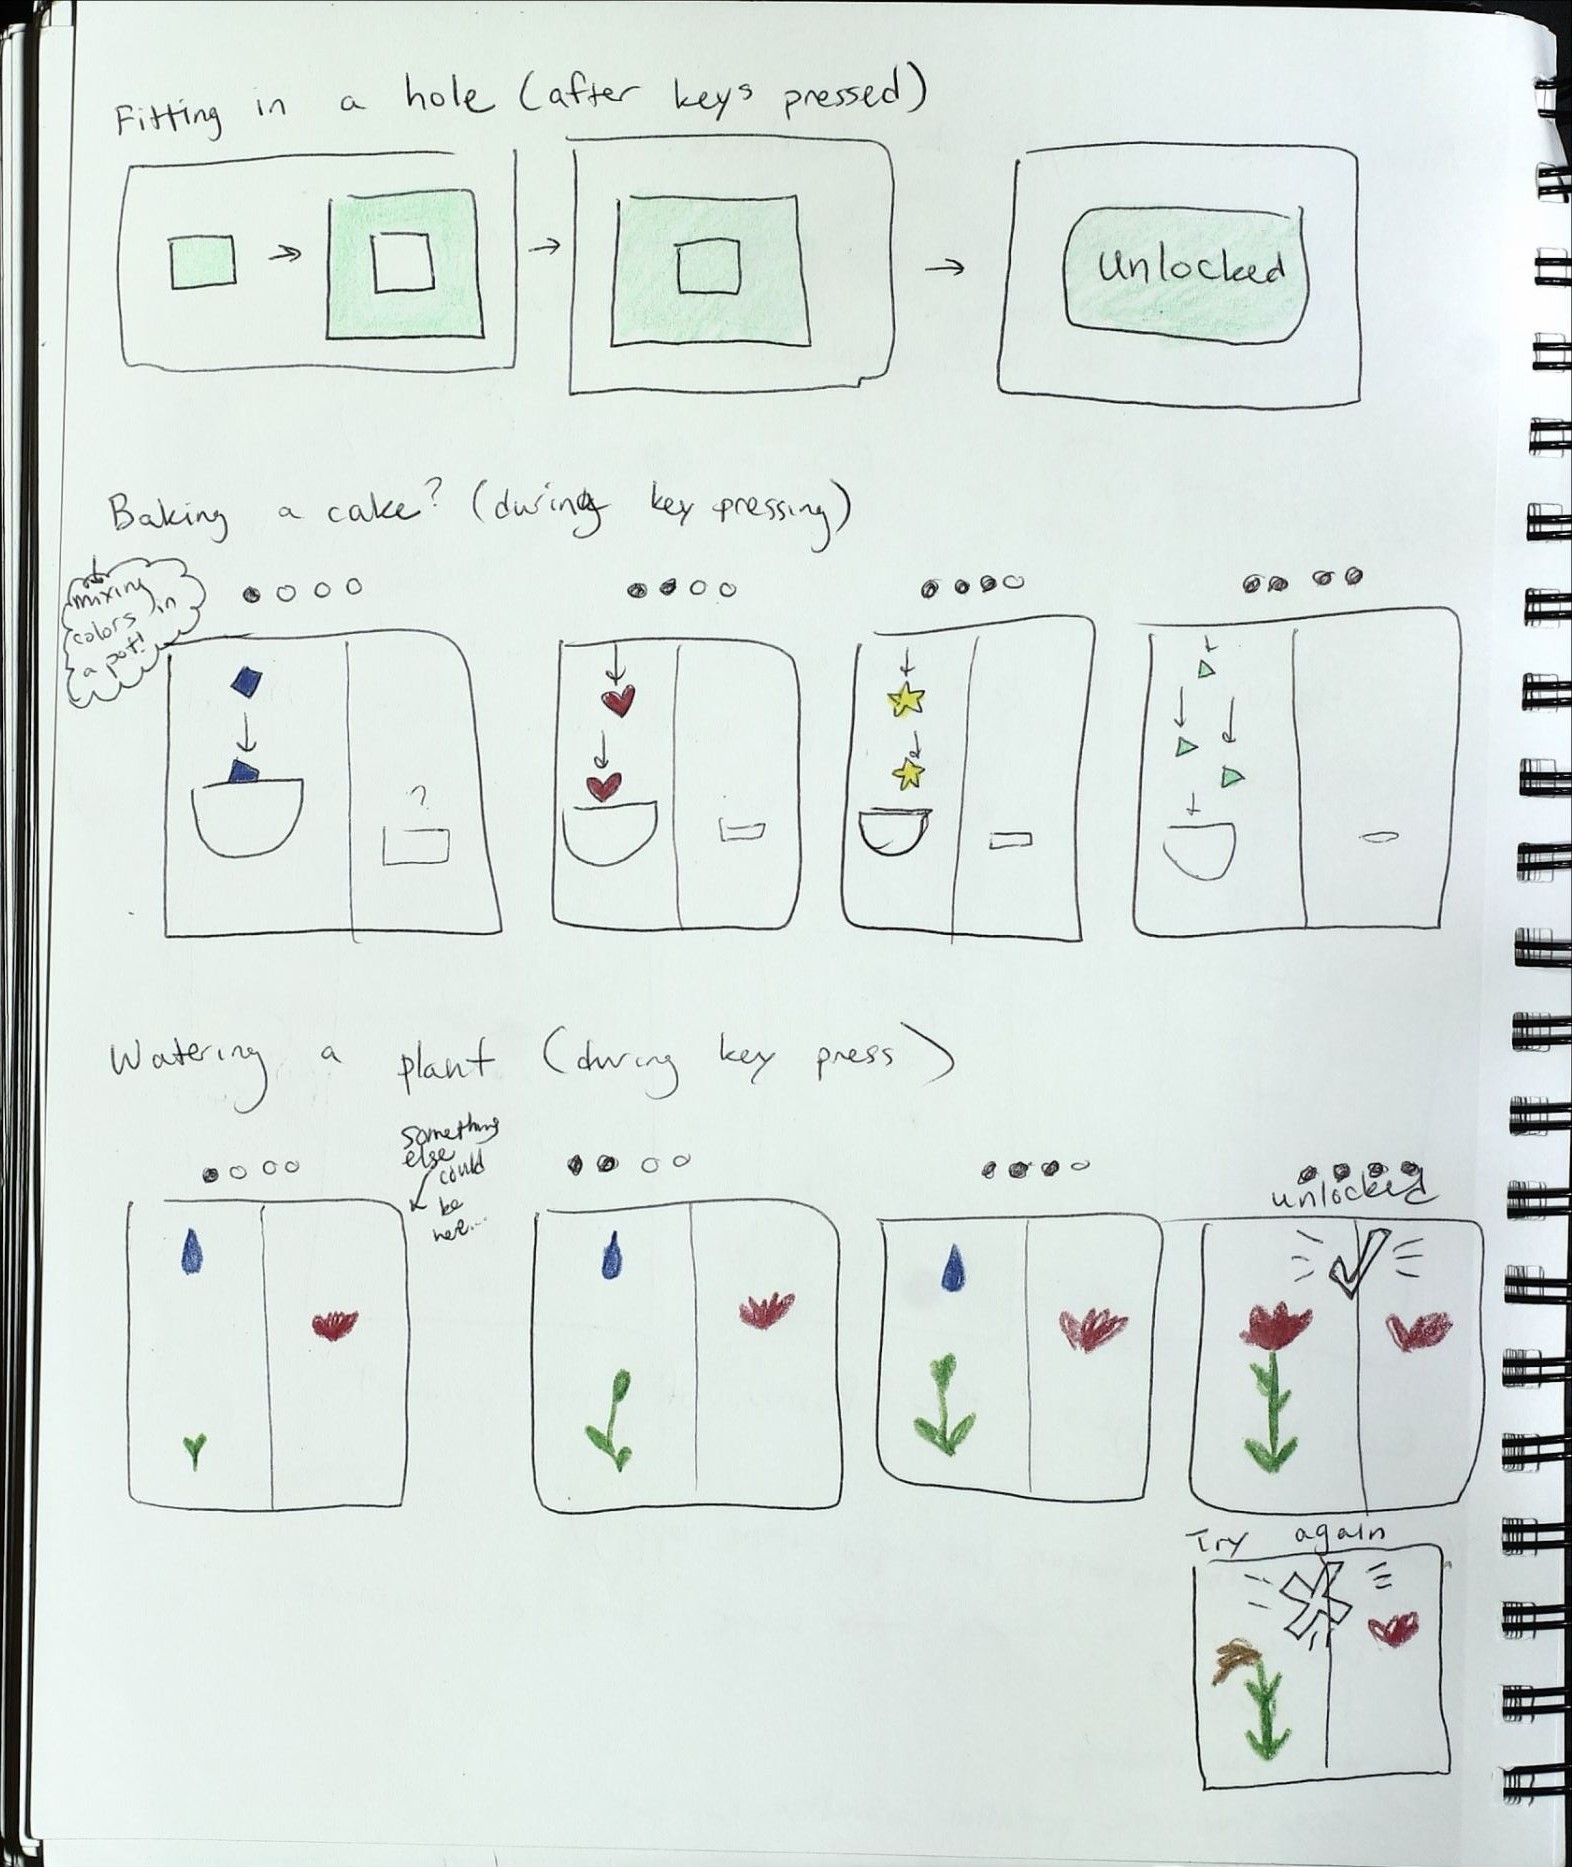 Fitting in a hole (after keys pressed)
Unlocked
Baking a cake? (during key pressing)
mixing
colors in
a pot!
?
Watering a plant (during key press)
something
else
could
be
here...
unlocked
Try again